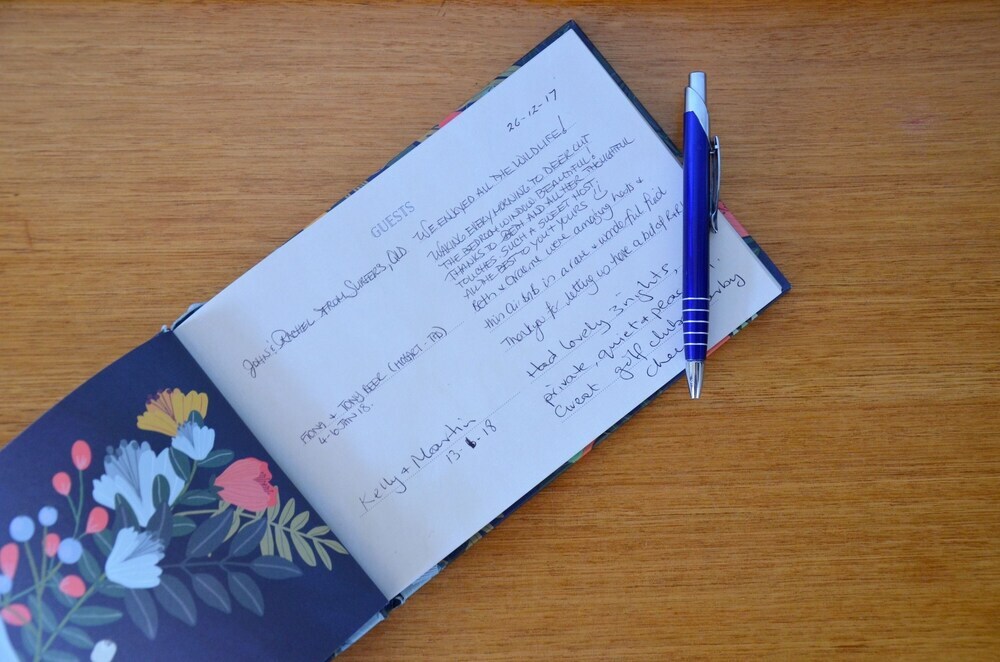 26-12-17
GUESTS
JOHN & RACHEL FROM SURFERS, QLD
WE ENJOYED ALL THE WILDLIFE!
WAKING EVERY MORNING TO DEER OUT
THE BEDROOM WINDOW BEAUTIFUL!
THANKS TO BETH AND ALL HER THOUGHTFUL
TOUCHES SUCH A SWEET HOST.
ALL THE BEST TO YOU & YOURS
FIONA & TONY BEER (HOBART - TAS)
4-6 JAN 18.
Beth & Graeme were amazing hosts &
this Air bnb is a rare & wonderful find
Thankyou for letting us have a
Kelly & Martin
13-6-18
Had lovely 3 nights,
private, quiet &
Great golf club